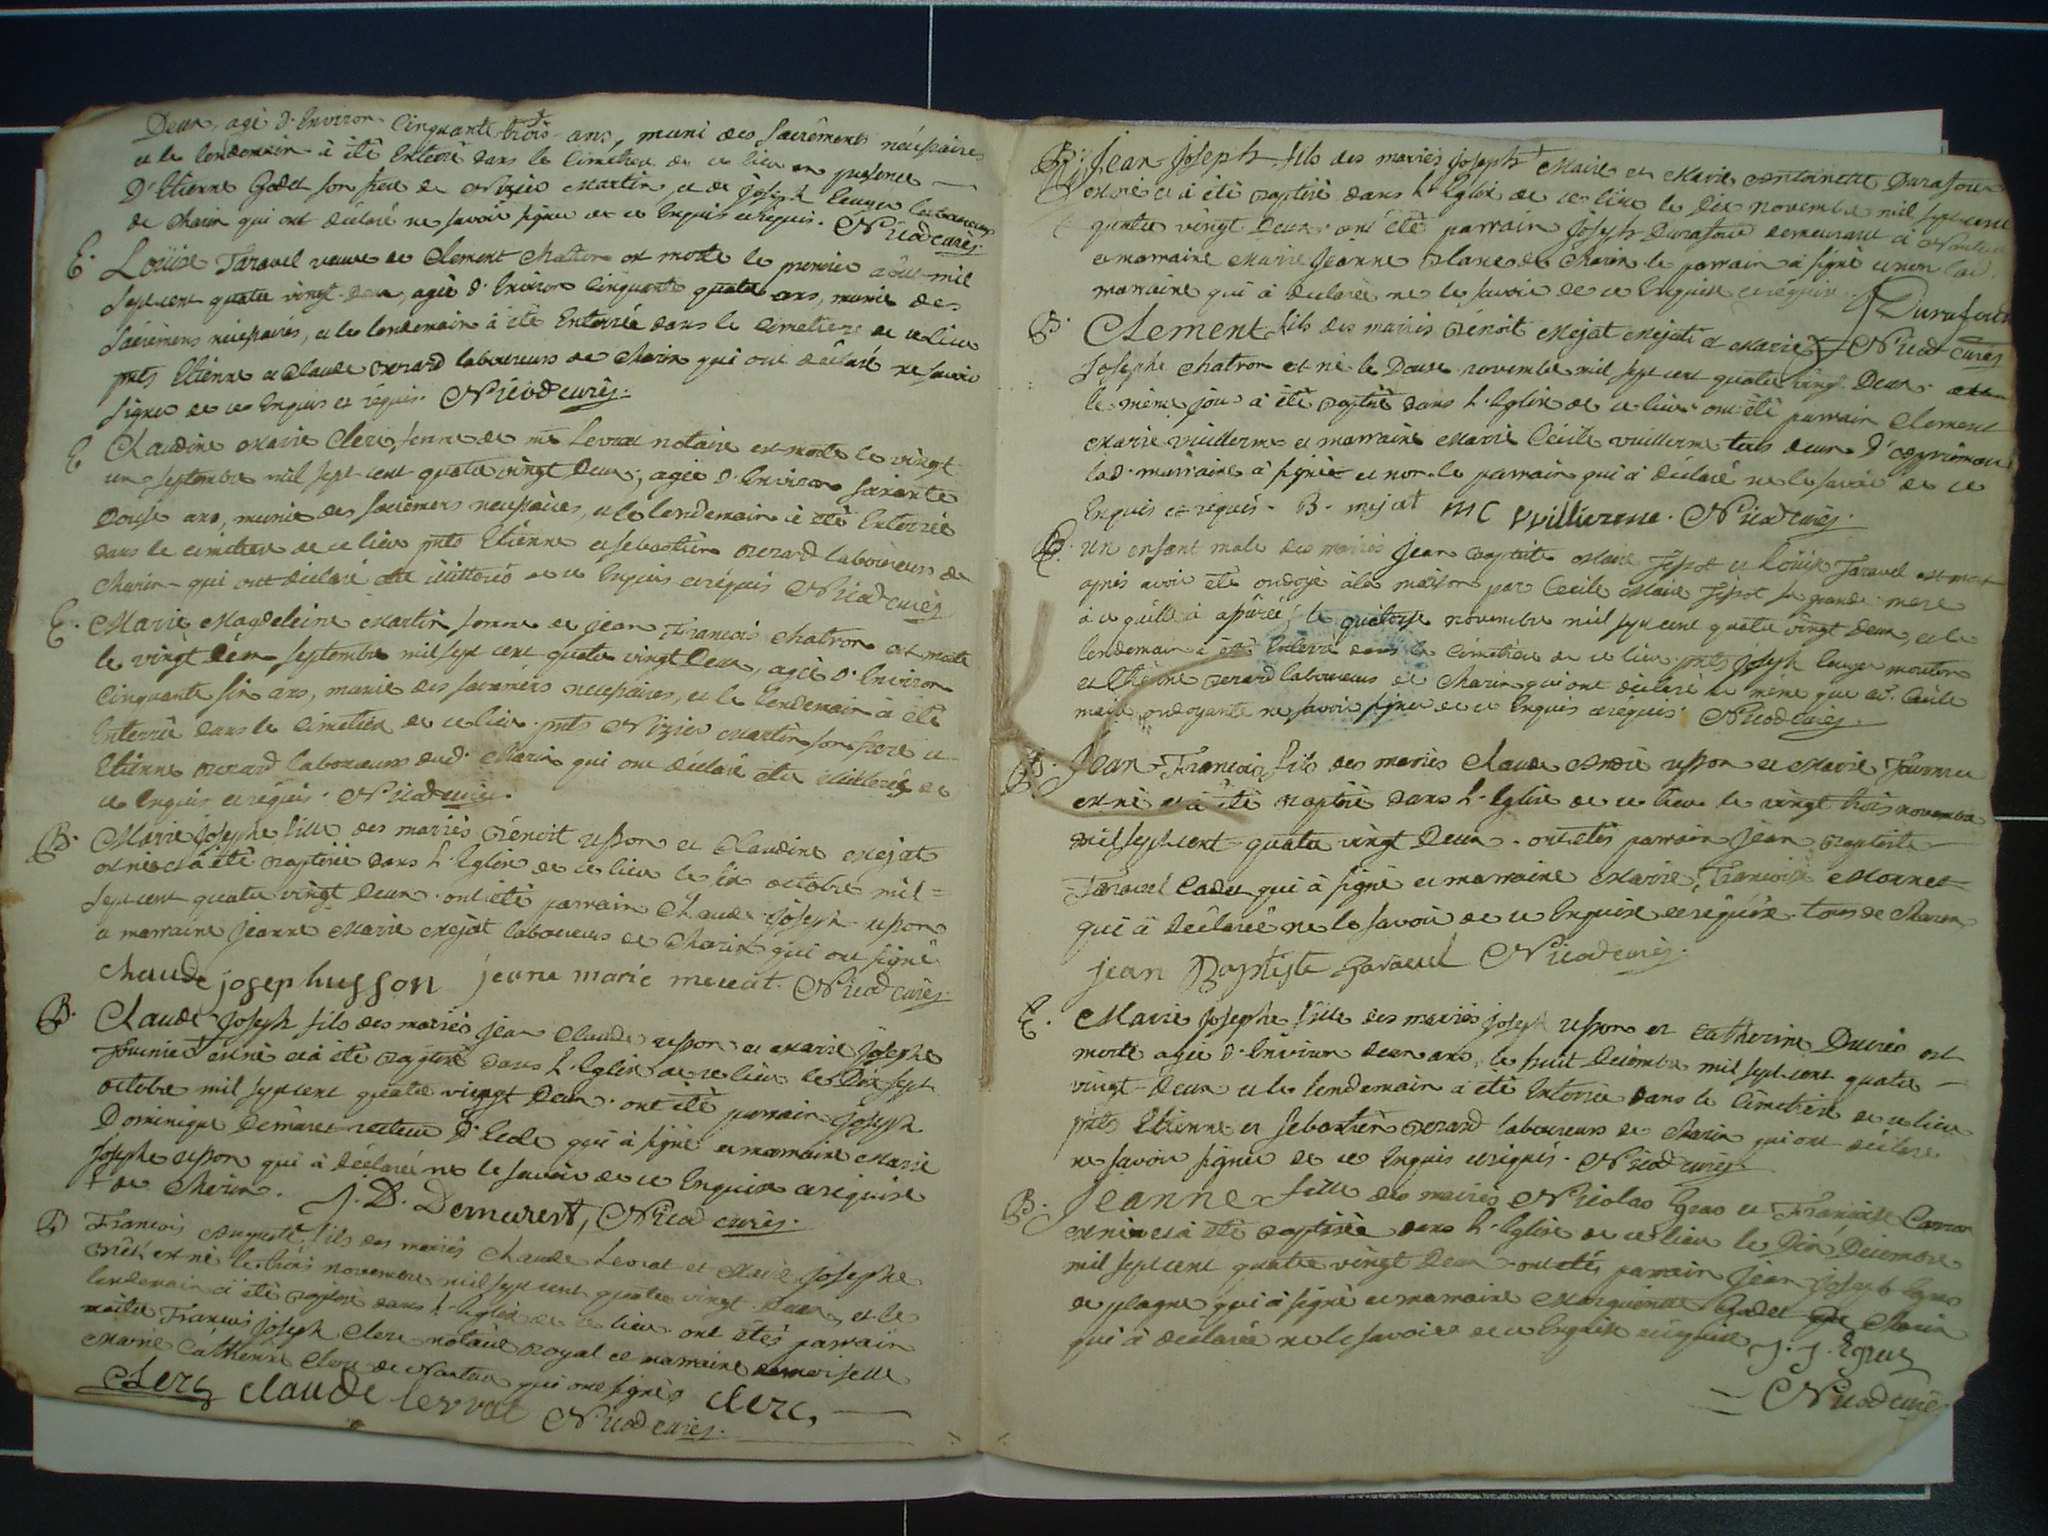 Deux, agé d'Environ Cinquante trois ans, muni des sacréments nécéssaires
et le lendemain à été Enterré dans le Cimetiere de ce lieu en presence
D'Etienne Godet son frere de Nizier Martin, et de joseph laboureurs
de Charix qui ont déclaré ne savoir signer de ce Enquis et requis. Nicod curé
E. Loüise Taravel veuve de Clement Chatron est morte le premier août mil
sept cent quatre vingt deux, agée d'Environ Cinquante quatre ans, munie des
sacrémens nécéssaires, et le lendemain à été Enterrée dans le Cimetiere de ce lieu
pnts Etienne et Claude Berard laboureurs de Charix qui ont déclaré ne savoir
signer de ce Enquis et requis. Nicod curé.
E Claudine Marie Clerc, femme de me Levrat notaire est morte le vingt
un septembre mil sept cent quatre vingt deux, agée d'Environ soixante
Douse ans, munie des sacrémens necessaires, et le lendemain à été Enterrée
dans le cimetiere de ce lieu pnts Etienne et sebastien Berard laboureurs de
Charix qui ont déclaré etre illitterés de ce Enquis et requis Nicod curé
E. Marie Magdeleine Martin femme de jean François Chatron est morte
le vingt septembre mil sept cent quatre vingt Deux, agée d'Environ
Cinquante six ans, munie des sacremens necessaires, et le lendemain à été
Enterrée dans le Cimetiere de ce lieu. pnts Nizier Martin son frere et
Etienne Berard laboureurs dud. Charix qui ont déclaré etre illitterés de
ce Enquis et requis. Nicod curé.
B. Marie josephe fille des mariés Bénoit usson et Claudine Mejat
est née et à été Baptisée dans l'Eglise de ce lieu le six octobre mil
sept cent quatre vingt Deux. ont été parrain Claude joseph usson
et marraine jeanne Marie Mejat laboureurs de Charix qui ont signé
Claude joseph usson jeane marie meuat. Nicod curé.
B. Claude joseph fils des mariés jean Claude usson et Marie josephe
fournier est né et à été Baptisé dans l'Eglise de ce lieu le Dix sept
octobre mil sept cent quatre vingt Deux. ont été parrain joseph
Dominique Démurest recteur d'Ecole qui à signé et marraine Marie
josephe usson qui à déclaré ne le savoir de ce Enquise et requise
+ de Charix. J. D. Demurest, Nicod curé.
B François Auguste, fils des mariés Claude Levrat et Marie josephe
est né le trois novembre mil sept cent quatre vingt Deux, et le
lendemain à été Baptisé dans l'Eglise de ce lieu ont étés parrain
maitre François joseph Clerc notaire royal et marraine demoiselle
Marie Catherine Clerc de Nantua qui ont signés
Clerc claude levrat clerc,
Nicod curé.
B. Jean-joseph fils des mariés joseph Maire et Marie Antoinette Durafour
est né et à été Baptisé dans l'Eglise de ce lieu le novembre mil sept cent
quatre vingt Deux. ont été parrain joseph Durafour demeurant à
et marraine Marie jeanne Blanc de Charix. le parrain à signé et non lad.
marraine qui à déclarée ne le savoir de ce Enquise et requise. Durafour
B. Clement fils des mariés Bénoit Mejat et Marie Nicod curé
josephe Chatron est né le Douse novembre mil sept cent quatre vingt Deux.
le même jour à été Baptisé dans l'Eglise de ce lieu. ont été parrain Clement
Marie vuillerme et marraine Marie Cécile vuillerme tous deux d'apprémont
lad. marraine à signée et non le parrain qui à déclaré ne le savoir de ce
Enquis et requis. B. mejat MC Vuillierme. Nicod curé.
E. un enfant male des mariés jean Baptiste Maire et Loüise Taravel est mort
après avoir été ondoyé à la maison par Cecile Maire sa grande mere
à ce qu'elle à assuré, le quatorse novembre mil sept cent quatre vingt deux, et le
lendemain à été Enterré dans le Cimetiere de ce lieu. pnts joseph
et Etienne Berard laboureurs de Charix qui ont déclaré de même que lad. Cécile
maire ondoyante ne savoir signer de ce Enquis et requis. Nicod curé.
B. Jean-François fils des mariés Claude André usson et Marie Fournier
est né et à été Baptisé dans l'Eglise de ce lieu le vingt trois novembre
mil sept cent quatre vingt Deux. ont étés parrain jean Baptiste
Taravel Cadet qui à signé et marraine Marie, Françoise Mornet
qui à déclarée ne le savoir de ce Enquise et requise. tous de Charix
jean Baptiste Taravel Nicod curé.
E. Marie josephe fille des mariés joseph usson et Catherine est
morte agée d'Environ deux ans, le huit Décembre mil sept cent quatre
vingt-Deux et le lendemain à été Enterrée dans le Cimetiere de ce lieu
pnts Etienne et sébastien Berard laboureurs de Charix qui ont déclaré
ne savoir signer de ce Enquis et requis. Nicod curé
B. Jeanne fille des mariés Nicolas et Françoise
est née et à été Baptisée dans l'Eglise de ce lieu le Dix Décembre
mil sept cent quatre vingt Deux. ont étés parrain Jean Joseph
de plagne qui à signé et marraine Marguerite Godet de Charix
qui à déclarée ne le savoir de ce Enquise et requise J. J.
Nicod curé